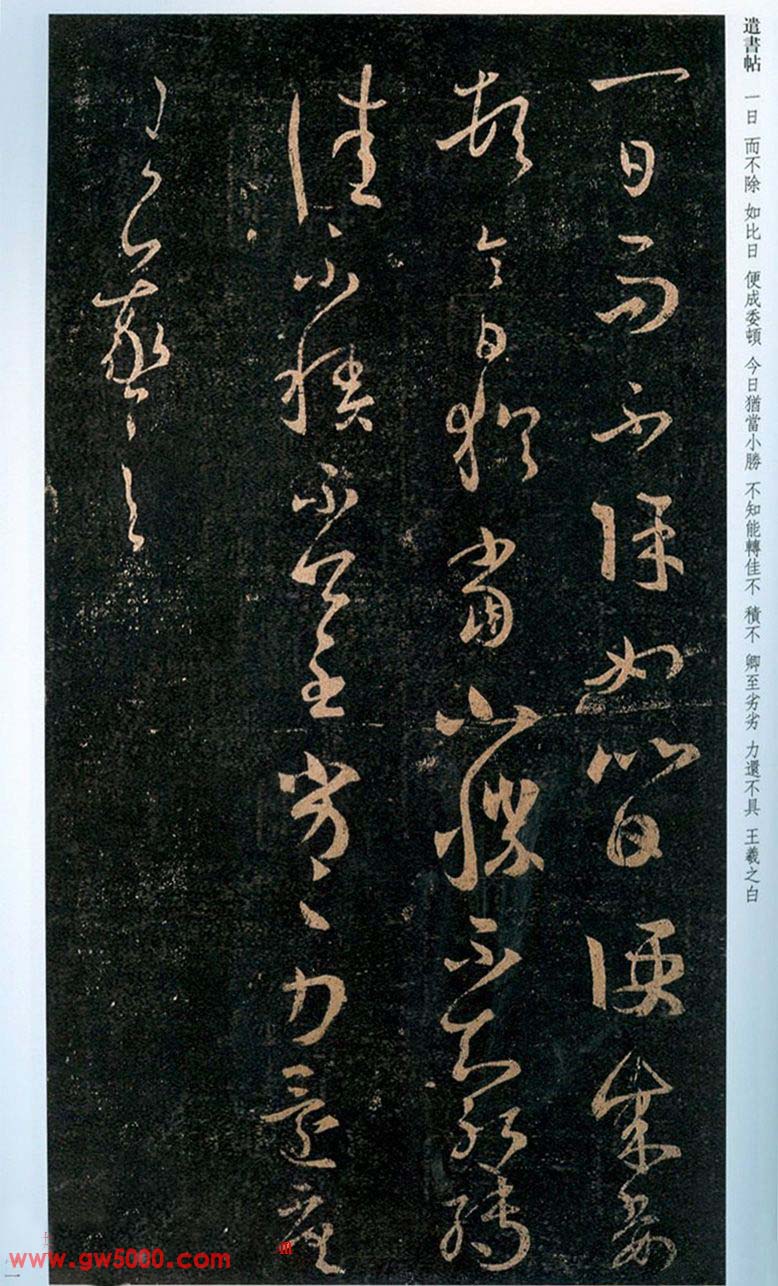 遣書帖 一日 而不除 如比日 便成委頓 今日猶當小勝 不知能轉佳不 積不 卿至劣劣 力還不具 王羲之白
一日而不除如比日便成委
頓今日猶當小勝不知能轉
佳不積不卿至劣〻力還不具
羲之
www.gw5000.com